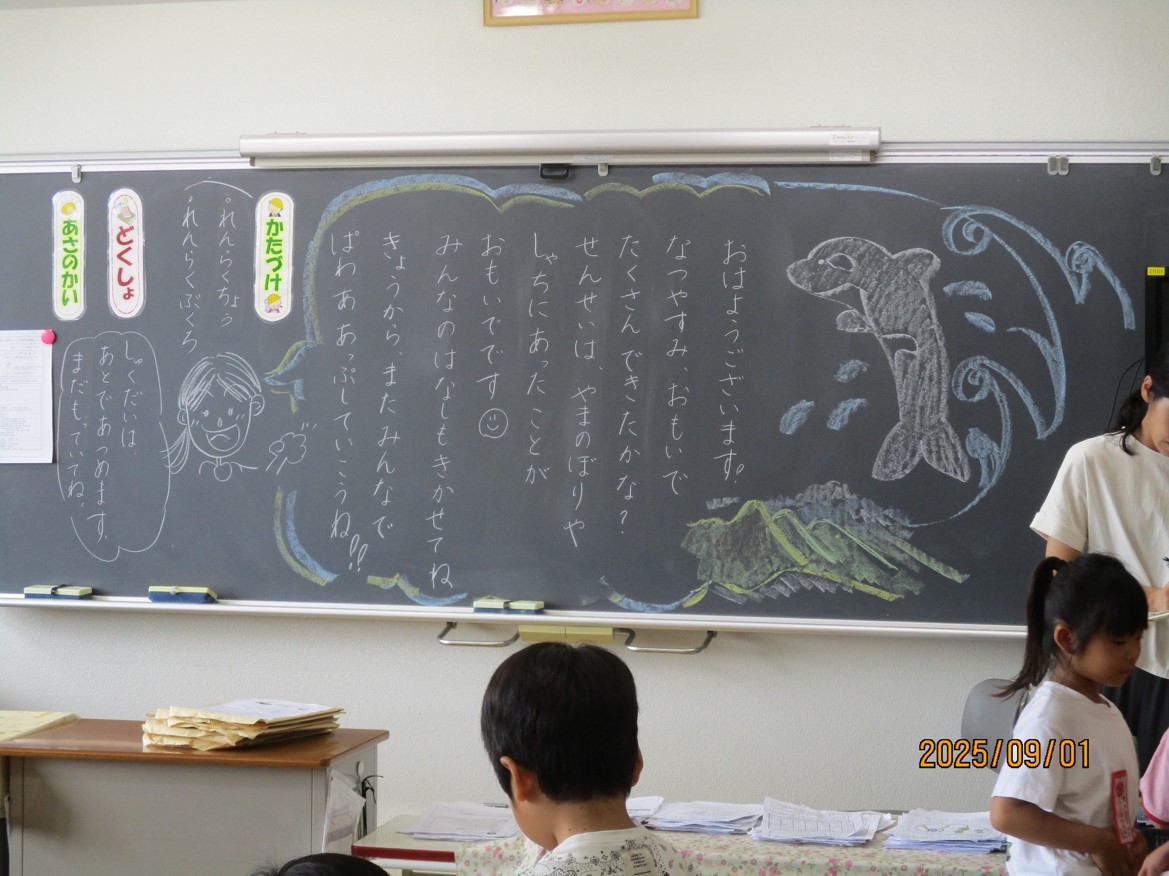 おはようございます。
なつやすみ、おもいで
たくさんできたかな？
せんせいは、やまのぼりや
しゃちにあったことが
おもいでです
みんなのはなしもきかせてね
きょうから、またみんなで
ぱわああっぷしていこうね!!
かたづけ
・れんらくちょう
・れんらくぶくろ
どくしょ
あさのかい
しゅくだいは
あとであつめます。
まだもっていてね。
2025/09/01